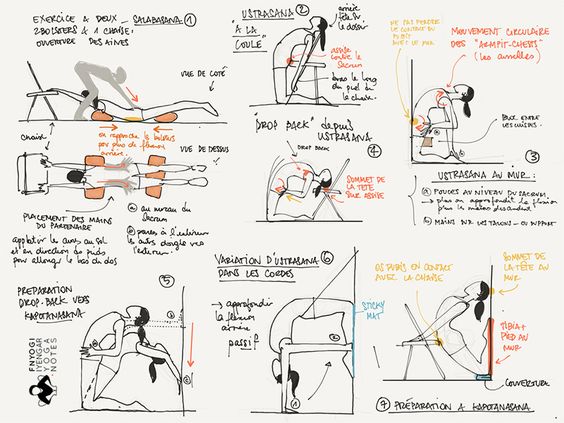 EXERCICE à DEUX _ SALABASANA ①
2 BOLSTERS & 1 CHAISE:
OUVERTURE DES AINES
VUE DE COTÉ
chaise
on rapproche les bolsters
pour plus de flexion
arrière
VUE DE DESSUS
PLACEMENT DES MAINS
DU PARTENAIRE
ⓐ au niveau du
Sacrum
ⓑ paumes à l'extérieur
vers l'extérieur.
et en direction des pieds
pour allonger le bas du dos
USTRASANA ②
"À LA
COULE"
arrière
tête sur le
dossier
assise
contre le
Sacrum
bras le long
du pied de
la chaise.
"DROP BACK" depuis
USTRASANA
④
DROP BACK
SOMMET DE
LA TÊTE
SUR ASSISE
NE PAS PERDRE
LE CONTACT DU
AVEC LE MUR
MOUVEMENT CIRCULAIRE
DES "ARMPIT-CHESTS"
(les aisselles)
BRICK ENTRE
LES CUISSES.
③
USTRASANA AU MUR:
ⓐ POUCES AU NIVEAU DU SACRUM
→ plus on approfondit la flexion
plus les mains descendent
ⓑ MAINS SUR LES TALONS _ OU SUPPORT
⑤
PREPARATION
DROP-BACK VERS
KAPOTANASANA
FNYOGI
IYENGAR
YOGA
NOTES
VARIATION D'USTRASANA ⑥
DANS LES CORDES
→ approfondir
la flexion
arrière
passif
STICKY
MAT
①
OS PUBIS EN CONTACT
AVEC LA CHAISE
SOMMET DE
LA TÊTE AU
MUR
TIBIA +
PIED AU
MUR
COUVERTURE
⑦ PRÉPARATION A KAPOTANASANA